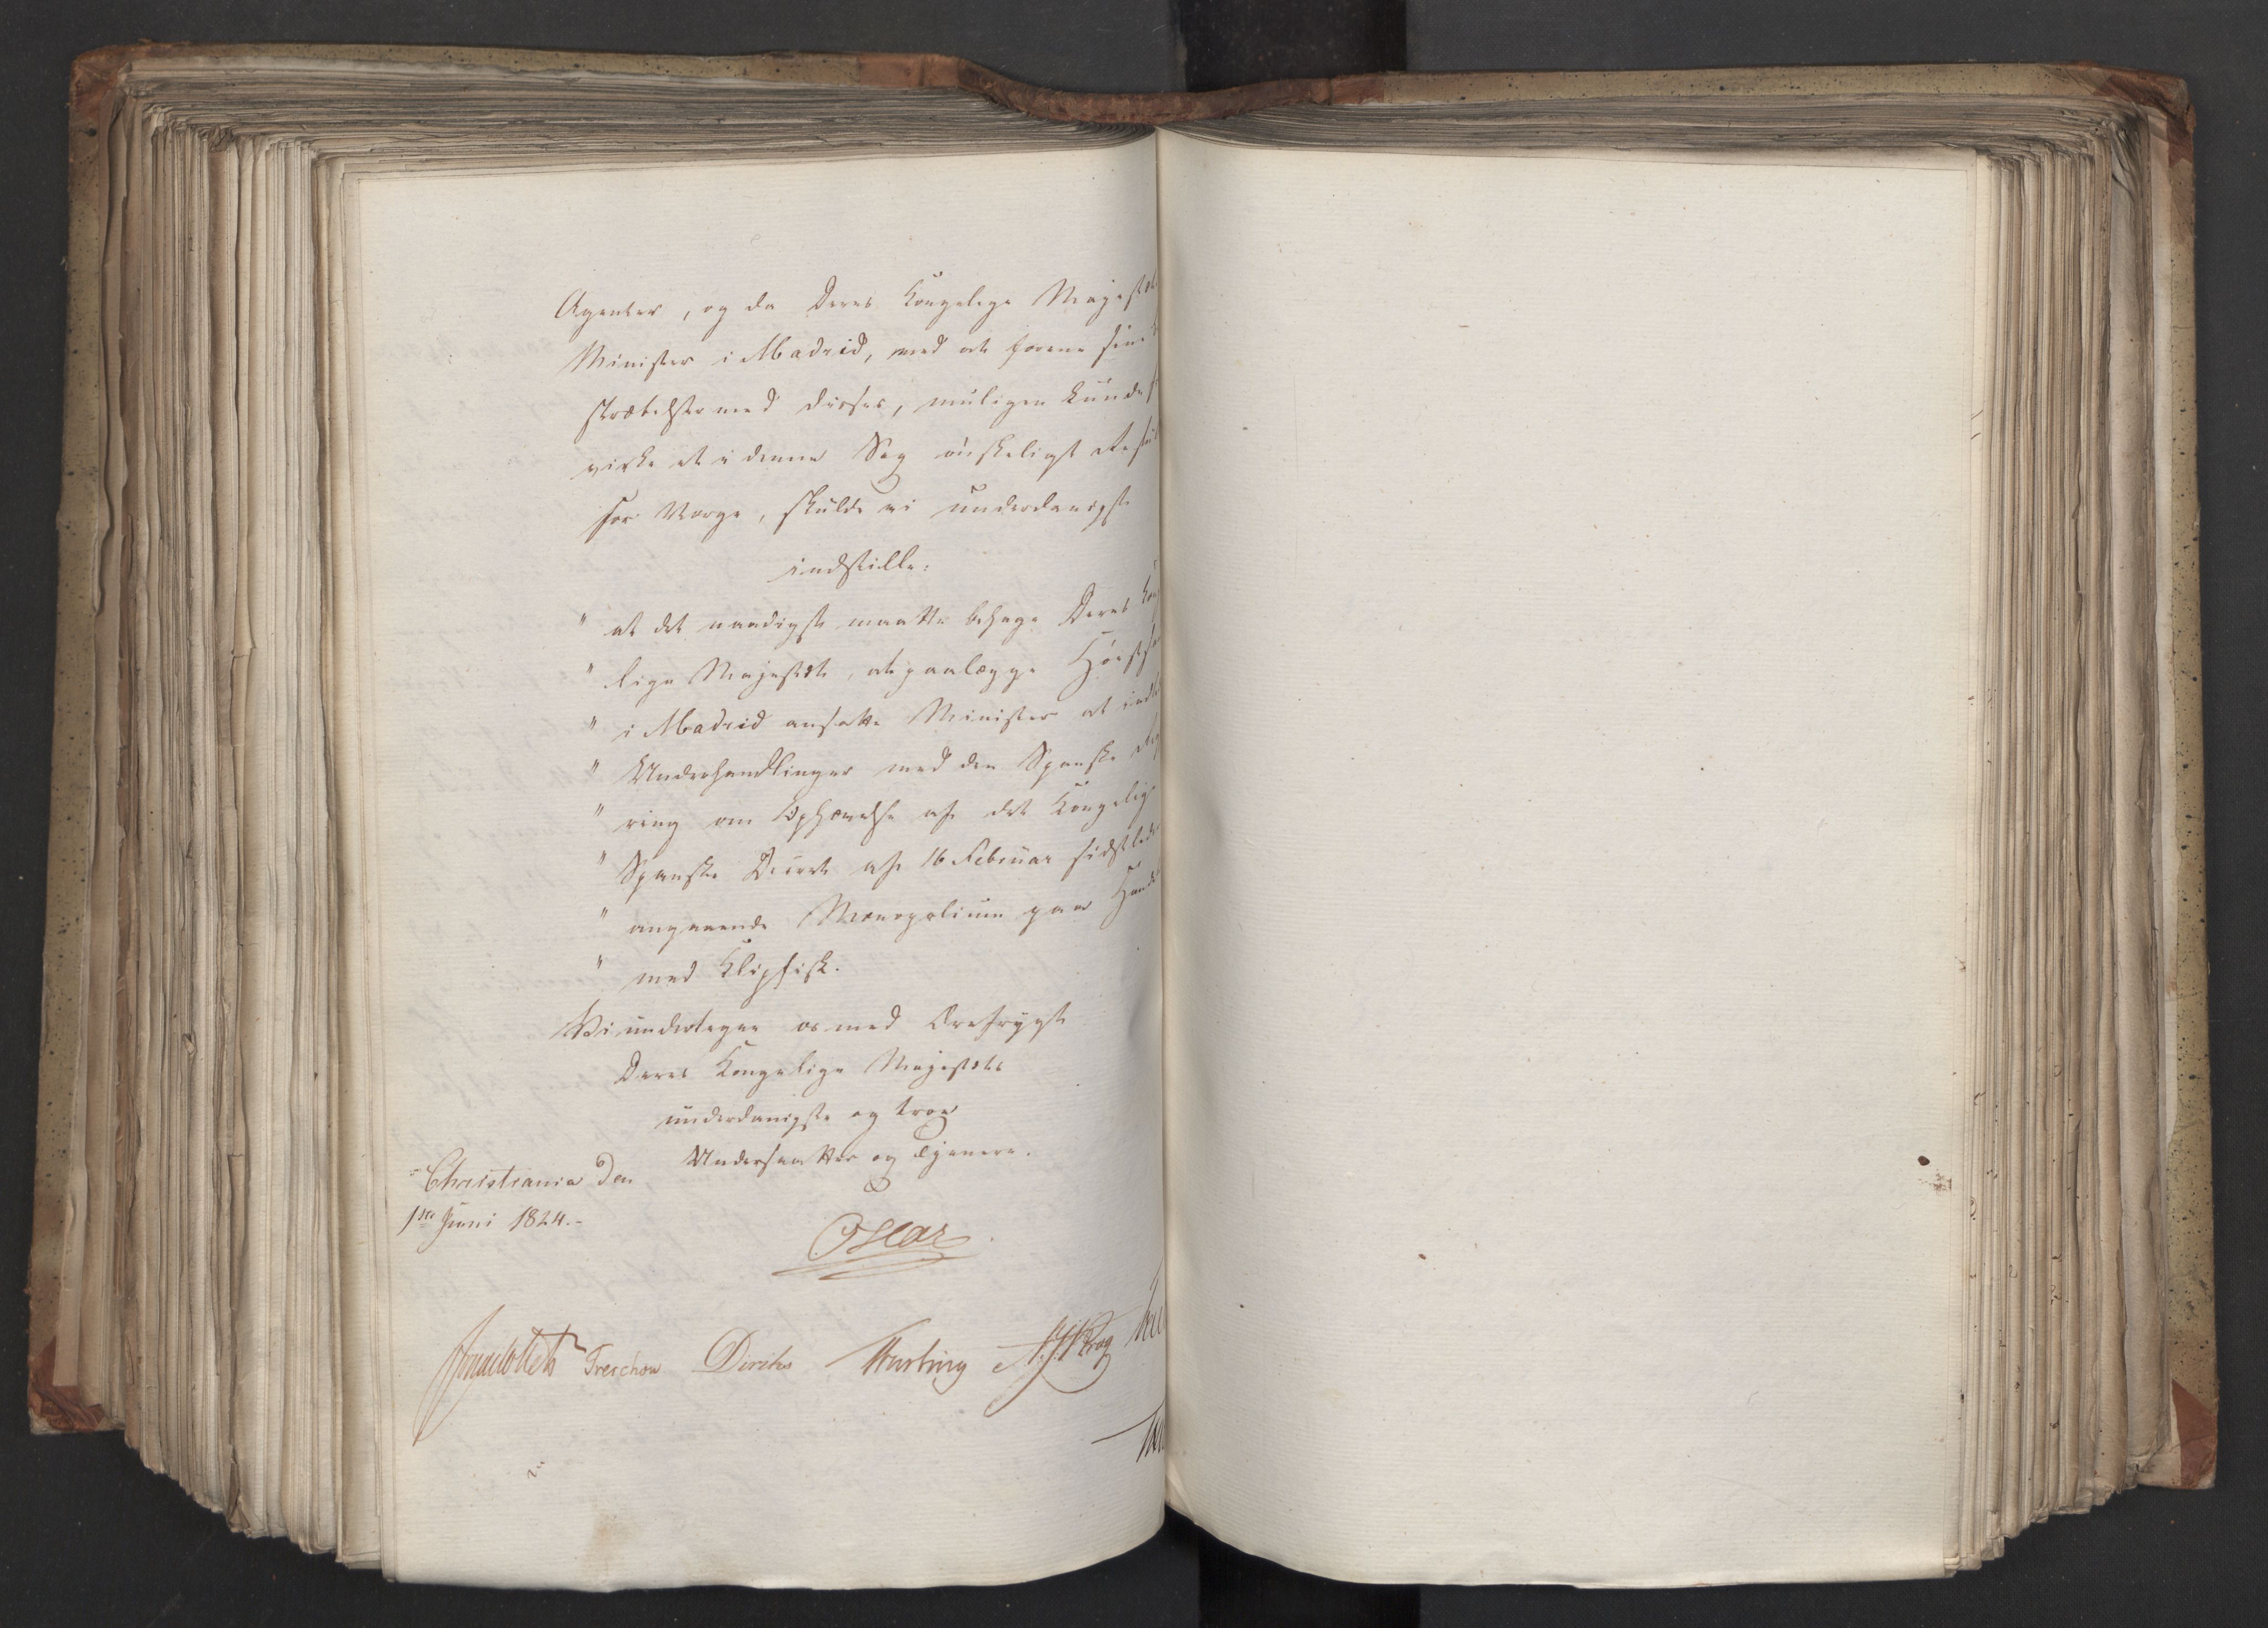 Agenter, og da Deres Kongelige Majestæts
Minister i Madrid, med at forene sine
stræbelser med disses, muligen kunde
virke et i denne Sag ønskeligt
for Norge, skulde vi underdanigst
indstille:
" at det naadigst maatte behage Deres Konge
" lige Majestæt, at paalægge
" i Madrid ansatte Minister at
" Underhandlinger med den Spanske
" ring om Ophævelse af det Kongelig
" Spanske Decret af 16 Februar sidstleden
" angaaende Monopolium paa Handel
" med Klipfisk.
Vi undertegne os med Ærefrygt
Deres Kongelige Majestæts
underdanigste og troe
Undersaatter og Tjenere.
Christiania den
1ste Juni 1824.-
Oscar
Treschow Diriks